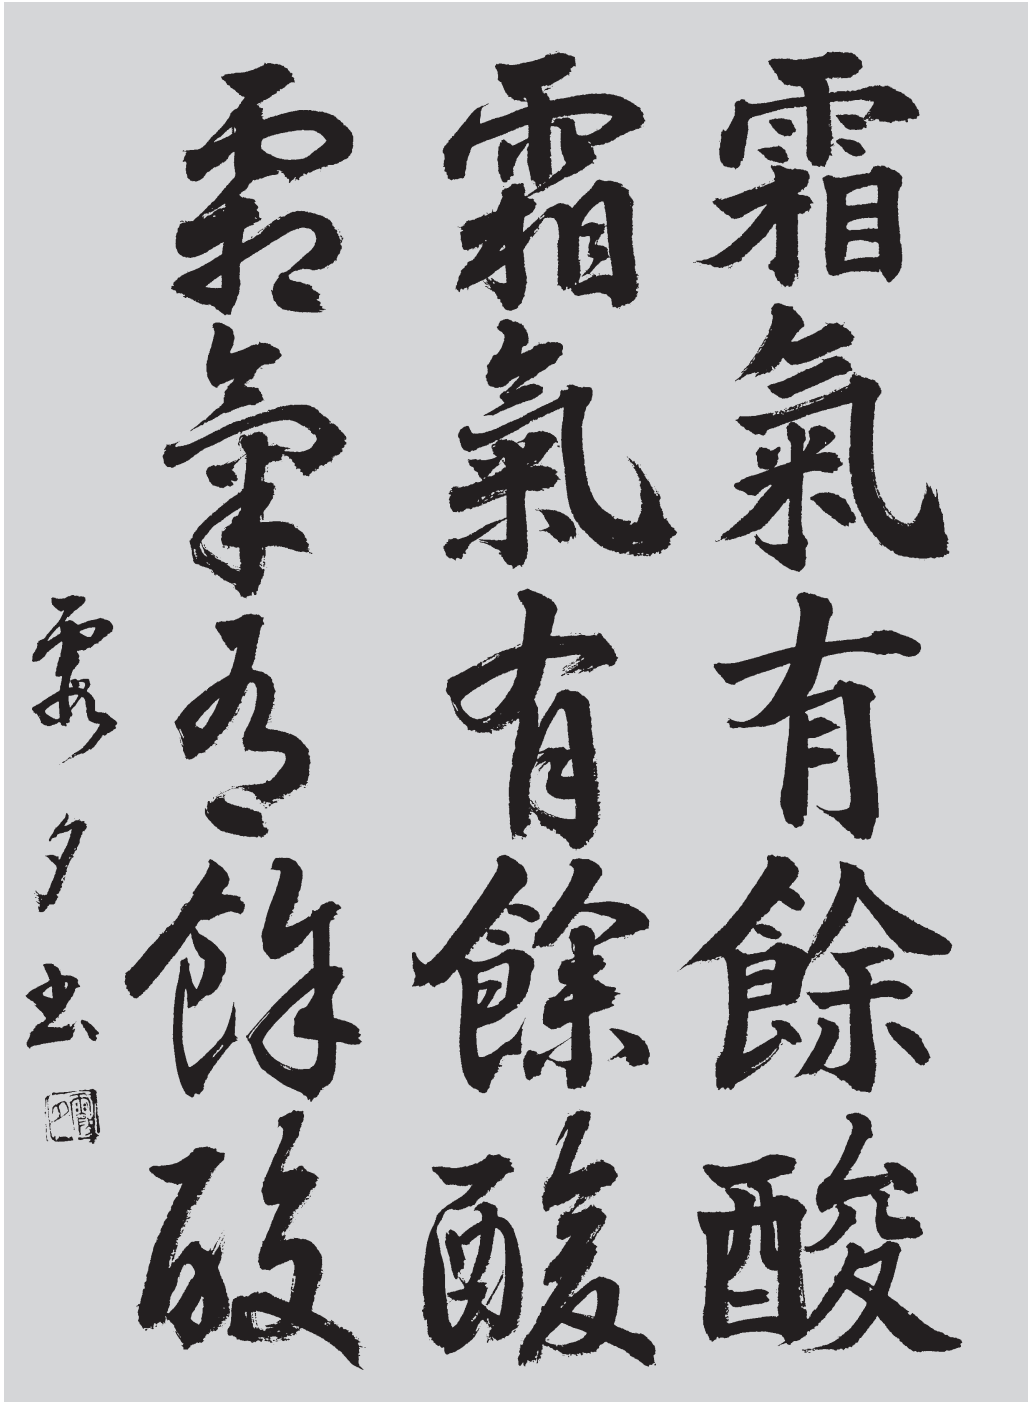 霜氣有餘酸
霜氣有餘酸
霜氣有餘酸
霞夕書